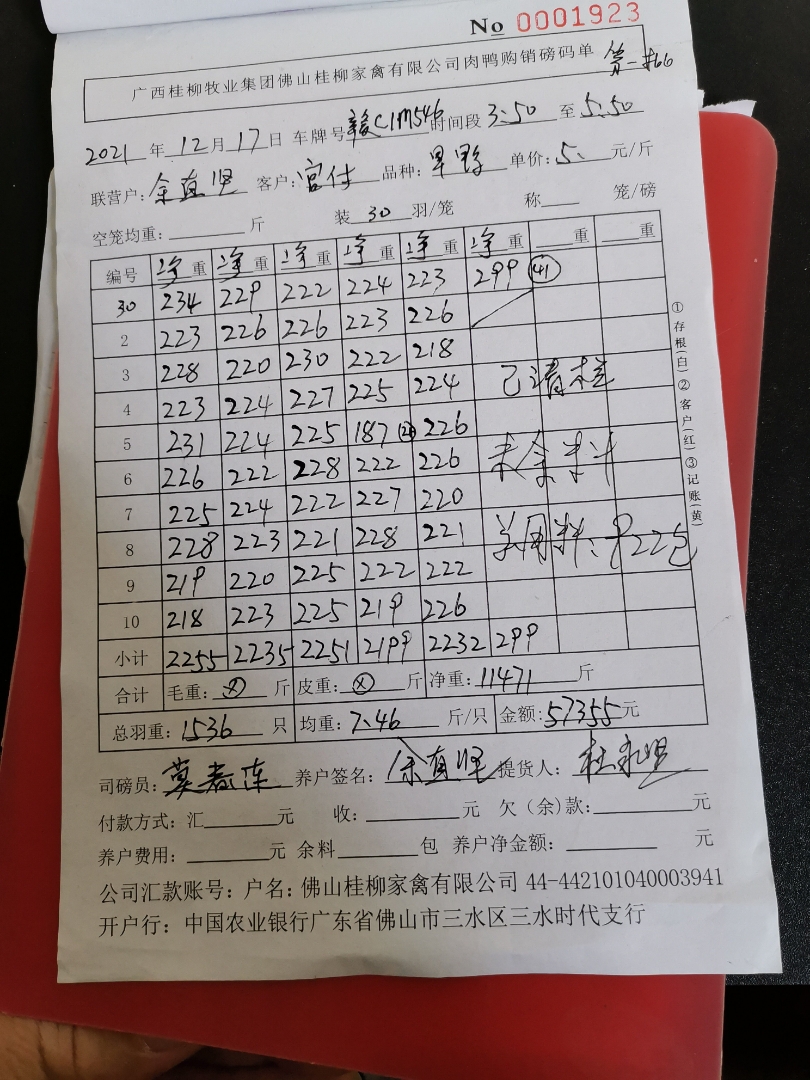 No 0001923
广西桂柳牧业集团佛山桂柳家禽有限公司肉鸭购销磅码单
2021 年 12 月 17 日 车牌号 赣C1M546 时间段 3:50 至 5:50
联营户: 余 客户: 官付 品种: 单价: 5. 元/斤
空笼均重: 斤 装 30 羽/笼 称 笼/磅
编号 净重 净重 净重 净重 净重 净重 重 重
30 234 229 222 224 223 299 (41)
2 223 226 226 223 226
3 228 220 230 222 218
4 223 224 227 225 224 已清栏
5 231 224 225 187 226
6 226 222 228 222 226 未余料
7 225 224 222 227 220
8 228 223 221 228 221 用料:
9 219 220 225 222 222
10 218 223 225 219 226
小计 2255 2235 2251 2199 2232 299
合计 毛重: ⓧ 斤 皮重: ⓧ 斤 净重: 11471 斤
总羽重: 1536 只 均重: 7.46 斤/只 金额: 57355 元
司磅员: 养户签名: 提货人:
付款方式: 汇 元 收: 元 欠（余）款: 元
养户费用: 元 余料 包 养户净金额: 元
公司汇款账号: 户名: 佛山桂柳家禽有限公司 44-442101040003941
开户行: 中国农业银行广东省佛山市三水区三水时代支行
①存根(白)②客户(红)③记账(黄)